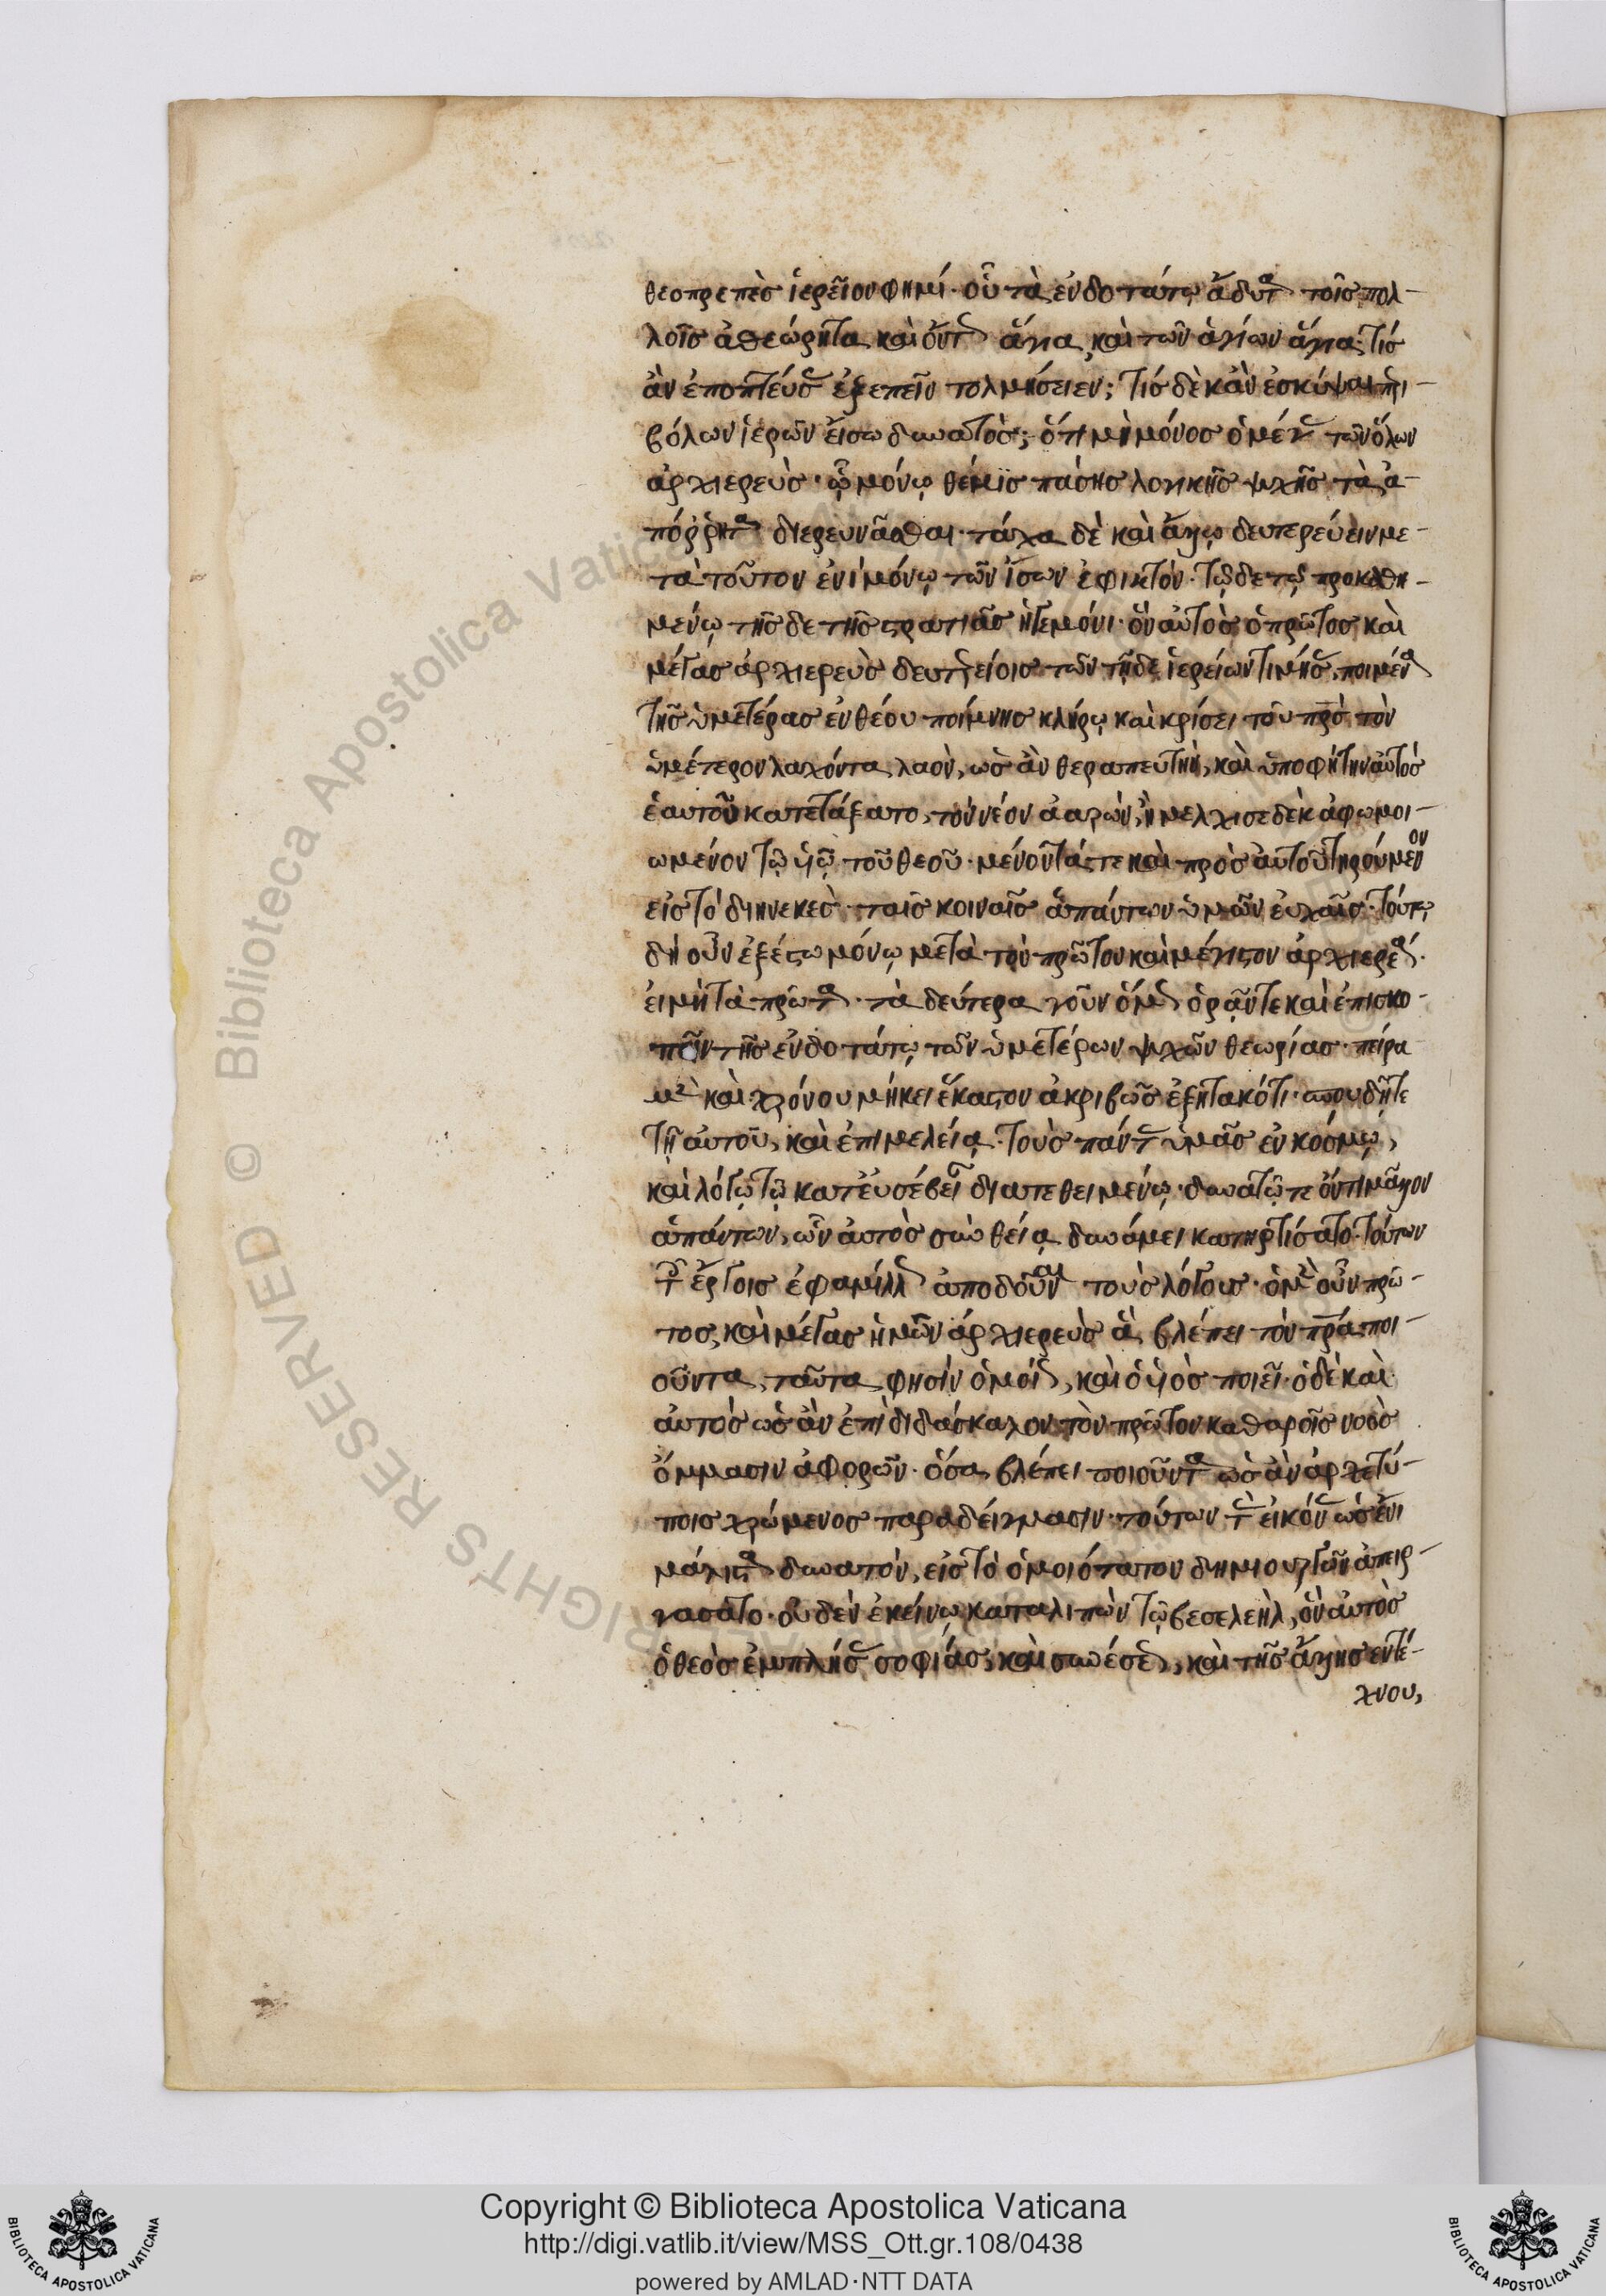 θεοπρεπὲσ ἱερεῖον φημί· οὗ τὰ ἐνδοτάτω ἄδυτα τοῖσ πολ-
λοῖσ ἀθεώρητα, καὶ ὄντ ἅγια, καὶ τῶν ἁγίων ἅγια· τίσ
ἂν ἐποπτεύσ ἐξειπεῖν τολμήσειεν; τίσ δὲ κἂν ἐσκύψαι περι-
βόλων ἱερῶν εἴσω δυνατὸσ; ὅτι μὴ μόνοσ ὁ μέγ τῶν ὅλων
ἀρχιερεὺσ· ᾧ μόνῳ θέμισ πάσησ λογικῆσ ψχῆσ τὰ ἀ-
πόρρητα διερευνᾶσθαι· τάχα δὲ καὶ ἄλλῳ δευτερεύειν με-
τὰ τοῦτον ἑνὶ μόνῳ τῶν ἴσων ἐφικτόν· τῷδε τῷ προκαθη-
μένῳ τῆσδε τῆσ στρατιᾶσ ἡγεμόνι· ὃν αὐτὸσ ὁ πρῶτοσ καὶ
μέγασ ἀρχιερεὺσ δευτερείοισ τῶν τῇδε ἱερείων τιμήσ, ποιμένα
τῆσ ὑμετέρασ ἐνθέου ποίμνησ κλήρῳ καὶ κρίσει τοῦ πρσ τὸν
ὑμέτερον λαχόντα λαὸν, ὡσ ἂν θεραπευτὴν, καὶ ὑποφήτην αὐτὸσ
ἑαυτοῦ κατετάξατο, τὸν νέον ἀαρὼν, ἢ μελχισεδὲκ ἀφωμοι-
ωμένον τῷ υἱῷ τοῦ θεοῦ· μένοντά τε καὶ πρὸσ αὐτοῦ τηρούμενον
εἰσ τὸ διηνεκεσ ταῖσ κοιναῖσ ἁπάντων ὑμῶν εὐχαῖσ· τούτῳ
δὴ οὖν ἐξέστω μόνῳ μετὰ τὸν πρῶτον καὶ μέγιστον ἀρχιερέα·
εἰ μὴ τὰ πρῶτα τὰ δεύτερα γοῦν ὅμ ὁρᾶν τε καὶ ἐπισκο-
πεῖν τῆσ ἐνδοτάτω τῶν ὑμετέρων ψχῶν θεωρίασ· πείρα
μὲν καὶ χρόνου μήκει ἕκαστον ἀκριβῶσ ἐξητακότι· σπουδῇ τε
τῇ αὐτοῦ, καὶ ἐπιμελείᾳ τοὺσ πάντ ὑμᾶσ ἐν κόσμῳ,
καὶ λόγῳ τῷ κατ εὐσέβει διατεθειμένῳ· δυνατῷ τε ὄντι μᾶλλον
ἁπάντων, ὧν αὐτὸσ σὺν θείᾳ δυνάμει κατηρτίσατο· τούτων
τ ἔργοισ ἐφαμίλλ ἀποδοῦναι τοὺσ λόγουσ· ὁ μὲν οὖν πρῶ-
τοσ καὶ μέγασ ἡμῶν ἀρχιερεὺσ ἃ βλέπει τὸν πρα ποι-
οῦντα, ταῦτα φησὶν ὁμοί, καὶ ὁ υἱὸσ ποιεῖ· ὁ δὲ καὶ
αὐτὸσ ὡσ ἂν ἐπὶ διδάσκαλον τὸν πρῶτον καθαροῖσ νοὸσ
ὄμμασιν ἀφορῶν· ὅσα βλέπει ποιοῦντα ὡσ ἂν ἀρχετύ-
ποισ χρώμενοσ παραδείγμασιν· τούτων τ εἰκόν ὡσ ἔνι
μάλιστα δυνατὸν, εἰσ τὸ ὁμοιότατον δημιουργῶν ἀπειρ-
γασατο· οὐδὲν ἐκείνῳ καταλιπὼν τῷ βεσελεὴλ, ὃν αὐτὸσ
ὁ θεὸσ ἐμπλήσ σοφίασ, καὶ συνέσε, καὶ τῆσ ἄλλησ ἐντέ-
χνου,